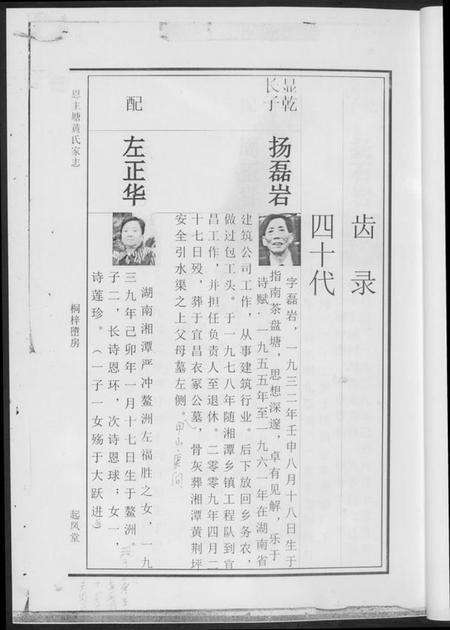 齿录
四十代
显乾
长子
扬磊岩
字磊岩，一九三二年壬申八月十八日生于
指南茶盘塘，思想深邃，卓有见解，乐于
诗赋。一九五五年至一九六一年在湖南省
建筑公司工作，从事建筑行业。后下放回乡务农，
做过包工头。于一九七八年随湘潭乡镇工程队到宜
昌工作，并担任负责人至退休。二零零九年四月二
十七日殁，葬于宜昌衣冢公墓，骨灰葬湘潭黄荆坪
安全引水渠之上父母墓左侧。
配
左正华
湖南湘潭严冲鳌洲左福胜之女，一九
三九年己卯年一月十七日生于鳌洲。
子二，长诗恩环，次诗恩球；女一，
诗莲珍。（一子一女殇于大跃进
恩主塘黄氏家志
桐梓堕房
起凤堂